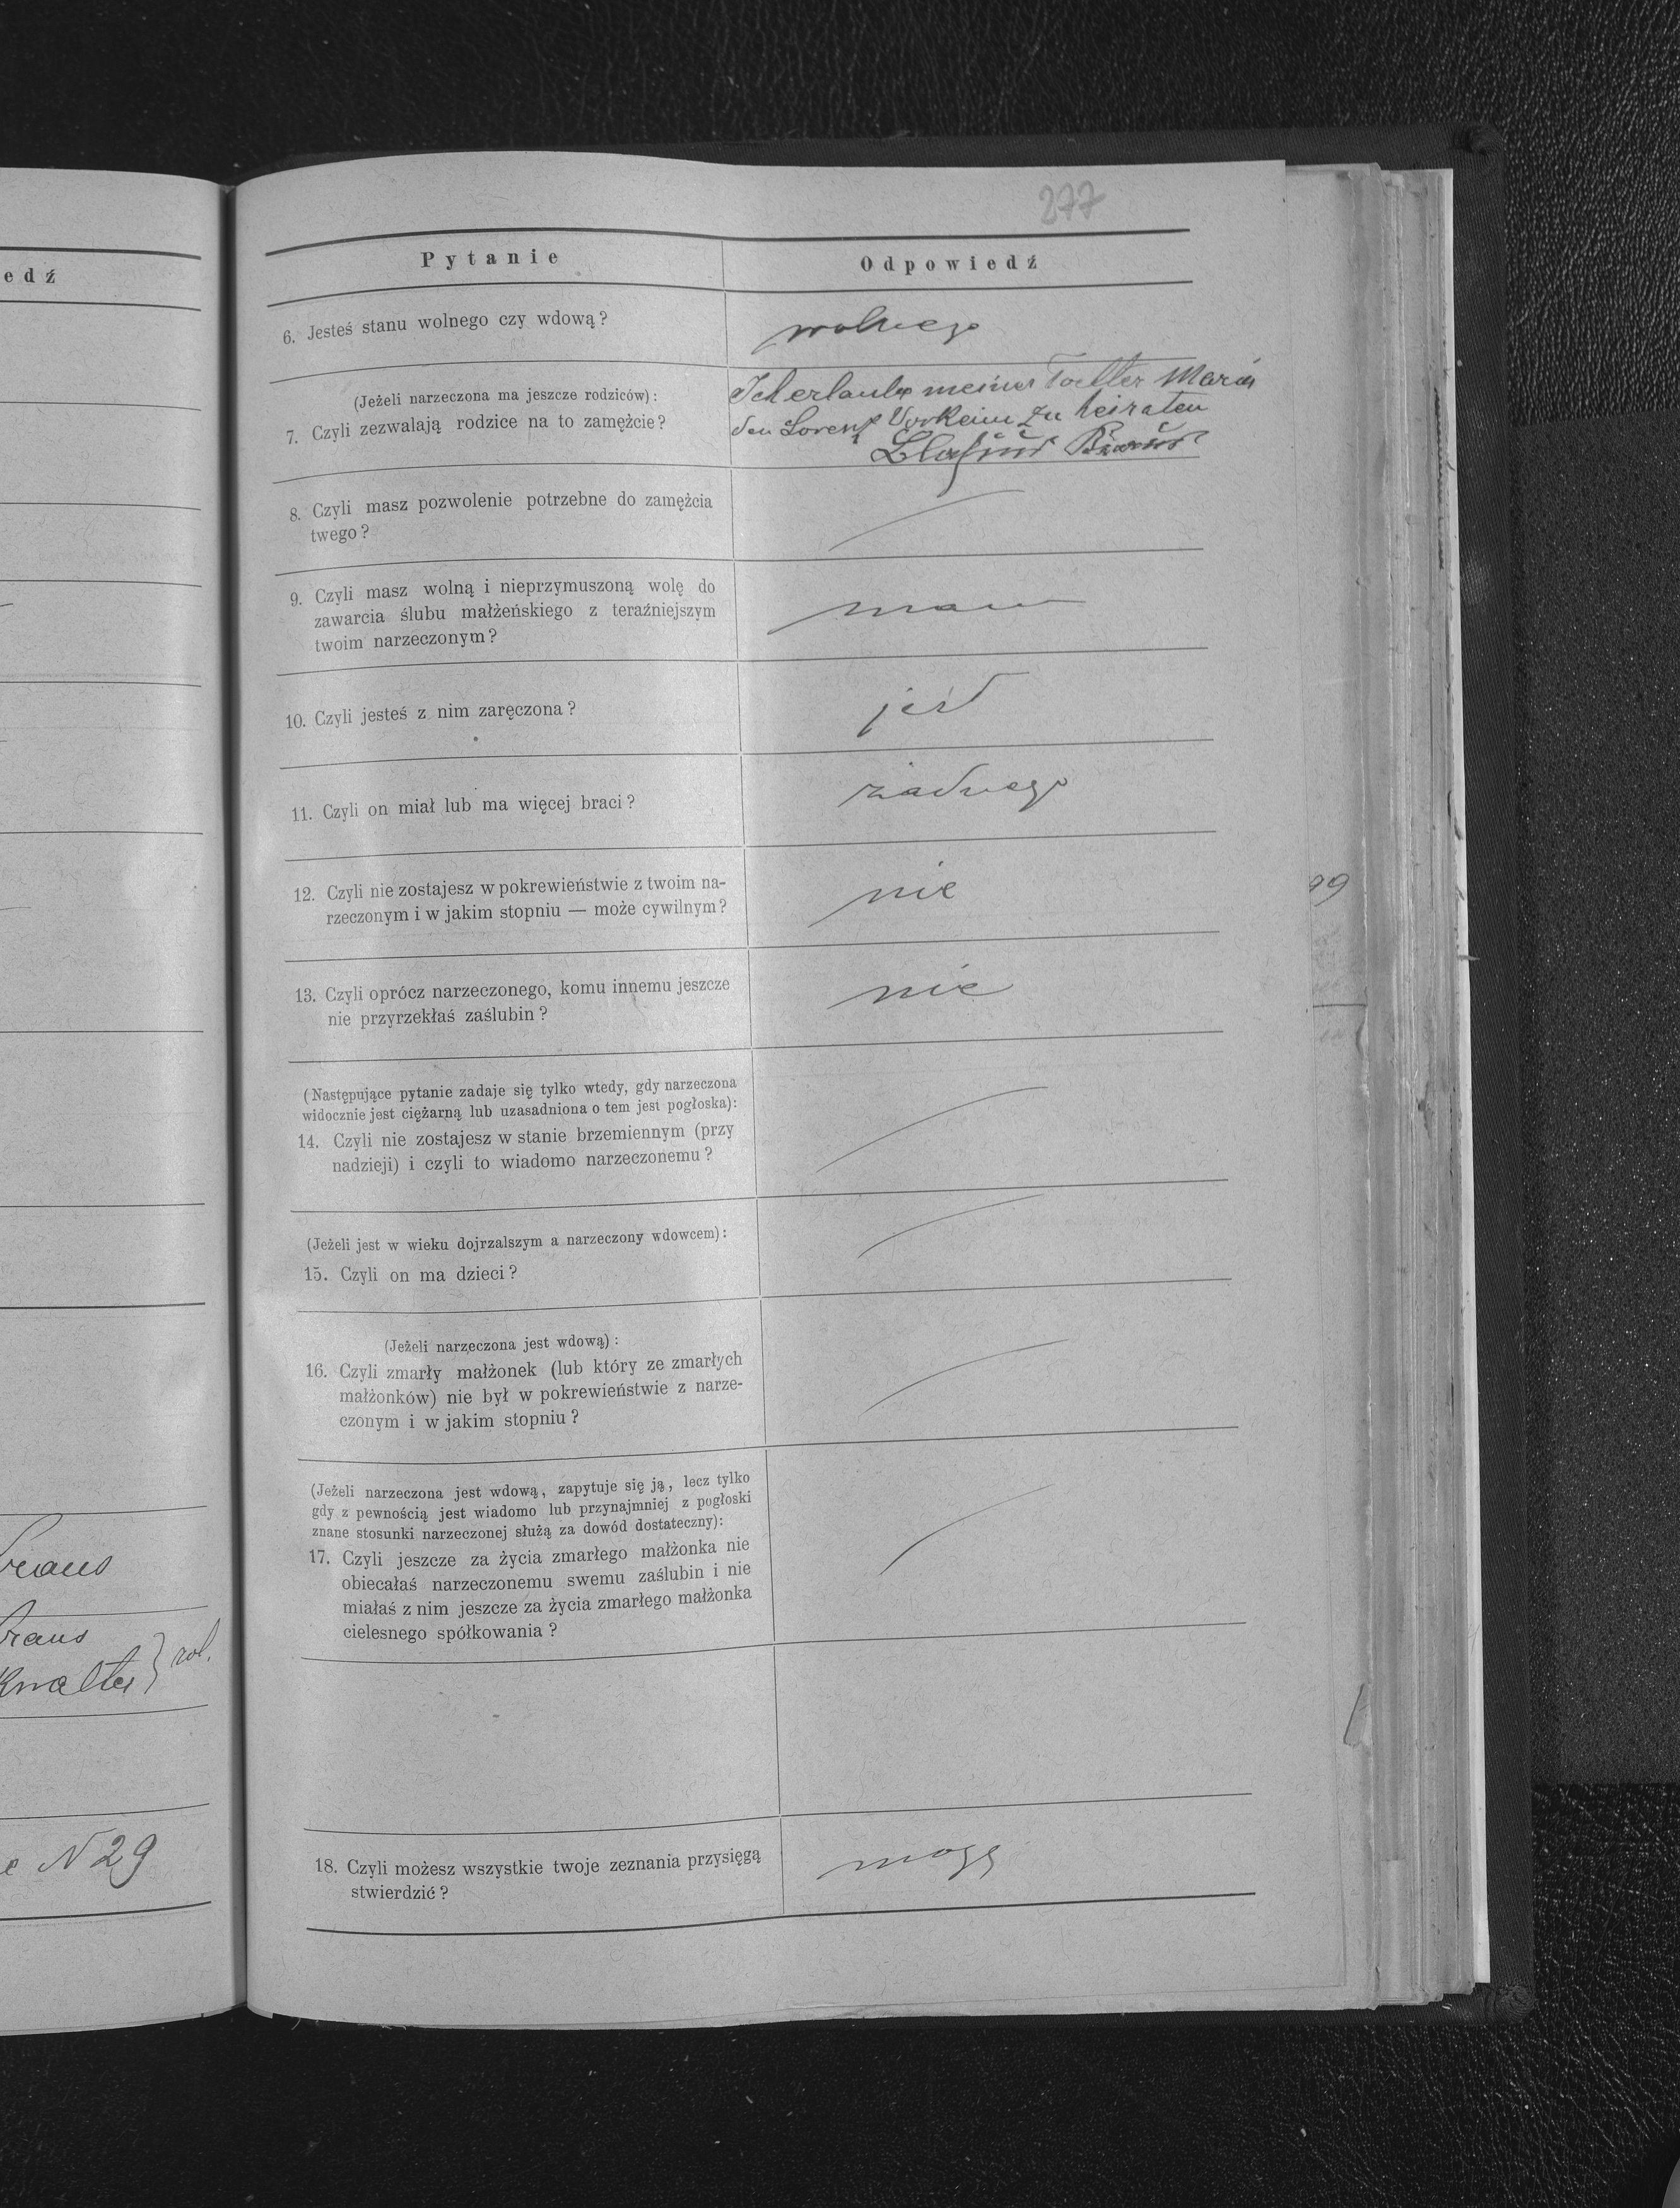 edź
raus
raus
Kwalter } rol.
N 29
277
Pytanie
Odpowiedź
6. Jesteś stanu wolnego czy wdową?
wolnego
(Jeżeli narzeczona ma jeszcze rodziców):
7. Czyli zezwalają rodzice na to zamężcie?
Ich erlaube meiner Tochter Maria
den Lorenz Vorkeim zu heiraten
8. Czyli masz pozwolenie potrzebne do zamężcia
twego?
9. Czyli masz wolną i nieprzymuszoną wolę do
zawarcia ślubu małżeńskiego z teraźniejszym
twoim narzeczonym?
mam
10. Czyli jesteś z nim zaręczona?
11. Czyli on miał lub ma więcej braci?
żadnego
12. Czyli nie zostajesz w pokrewieństwie z twoim na-
rzeczonym i w jakim stopniu — może cywilnym?
nie
13. Czyli oprócz narzeczonego, komu innemu jeszcze
nie przyrzekłaś zaślubin?
nie
(Następujące pytanie zadaje się tylko wtedy, gdy narzeczona
widocznie jest ciężarną lub uzasadniona o tem jest pogłoska):
14. Czyli nie zostajesz w stanie brzemiennym (przy
nadzieji) i czyli to wiadomo narzeczonemu?
(Jeżeli jest w wieku dojrzalszym a narzeczony wdowcem):
15. Czyli on ma dzieci?
(Jeżeli narzeczona jest wdową):
16. Czyli zmarły małżonek (lub który ze zmarłych
małżonków) nie był w pokrewieństwie z narze-
czonym i w jakim stopniu?
(Jeżeli narzeczona jest wdową, zapytuje się ją, lecz tylko
gdy z pewnością jest wiadomo lub przynajmniej z pogłoski
znane stosunki narzeczonej służą za dowód dostateczny):
17. Czyli jeszcze za życia zmarłego małżonka nie
obiecałaś narzeczonemu swemu zaślubin i nie
miałaś z nim jeszcze za życia zmarłego małżonka
cielesnego spółkowania?
18. Czyli możesz wszystkie twoje zeznania przysięgą
stwierdzić?
mogę
99